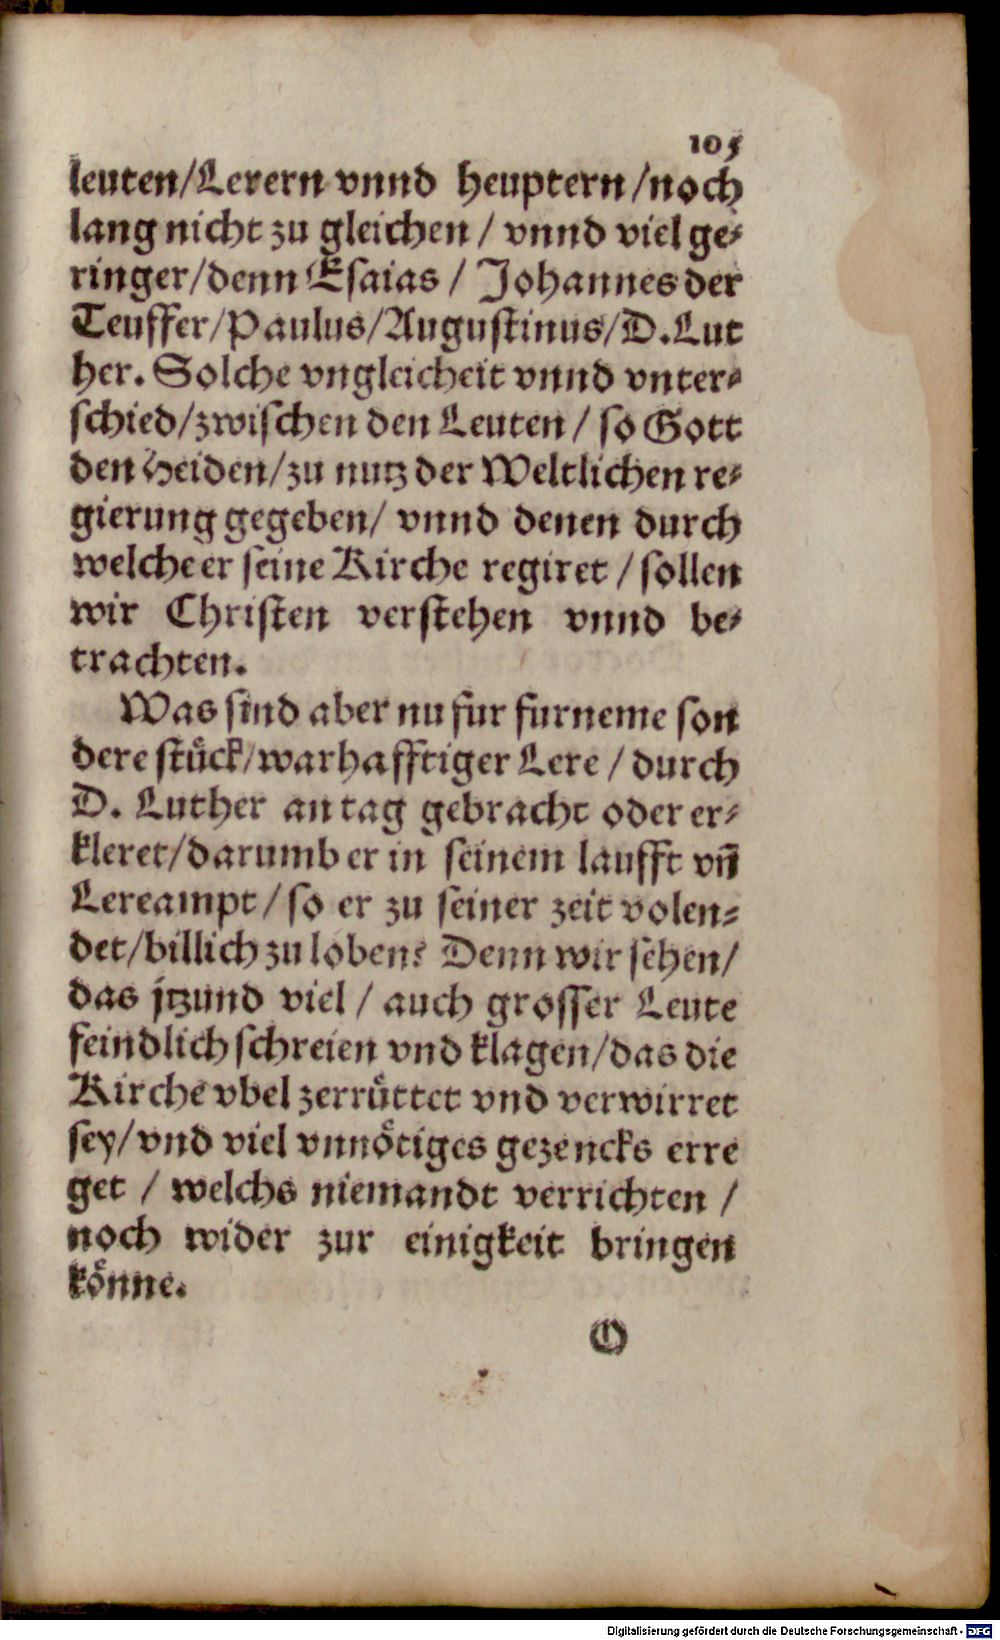 105
leuten/Lerern vnnd heuptern/noch
lang nicht zu gleichen / vnnd viel ge-
ringer/denn Esaias / Johannes der
Teuffer/Paulus/Augustinus/D.Lut
her. Solche vngleicheit vnnd vnter-
schied/zwischen den Leuten / so Gott
den Heiden/zu nutz der Weltlichen re-
gierung gegeben/ vnnd denen durch
welche er seine Kirche regiret / sollen
wir Christen verstehen vnnd be-
trachten.
Was sind aber nu fur furneme son
dere stück/warhafftiger Lere / durch
D. Luther an tag gebracht oder er-
kleret/darumb er in seinem laufft vñ
Lereampt/so er zu seiner zeit volen-
det/billich zu loben? Denn wir sehen/
das jtzund viel / auch grosser Leute
feindlich schreien vnd klagen/das die
Kirche vbel zerrüttet vnd verwirret
sey/vnd viel vnnötiges gezencks erre
get / welchs niemandt verrichten /
noch wider zur einigkeit bringen
könne.
O
Digitalisierung gefördert durch die Deutsche Forschungsgemeinschaft - DFG